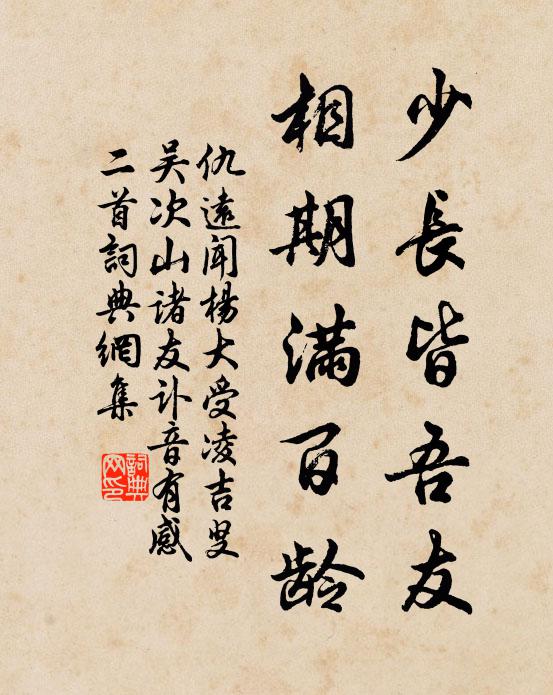 少長皆吾友
相期滿百龄
仇遠聞楊大受凌吉叟
吴次山諸友訃音有感
二首詞典網集
詞典网印